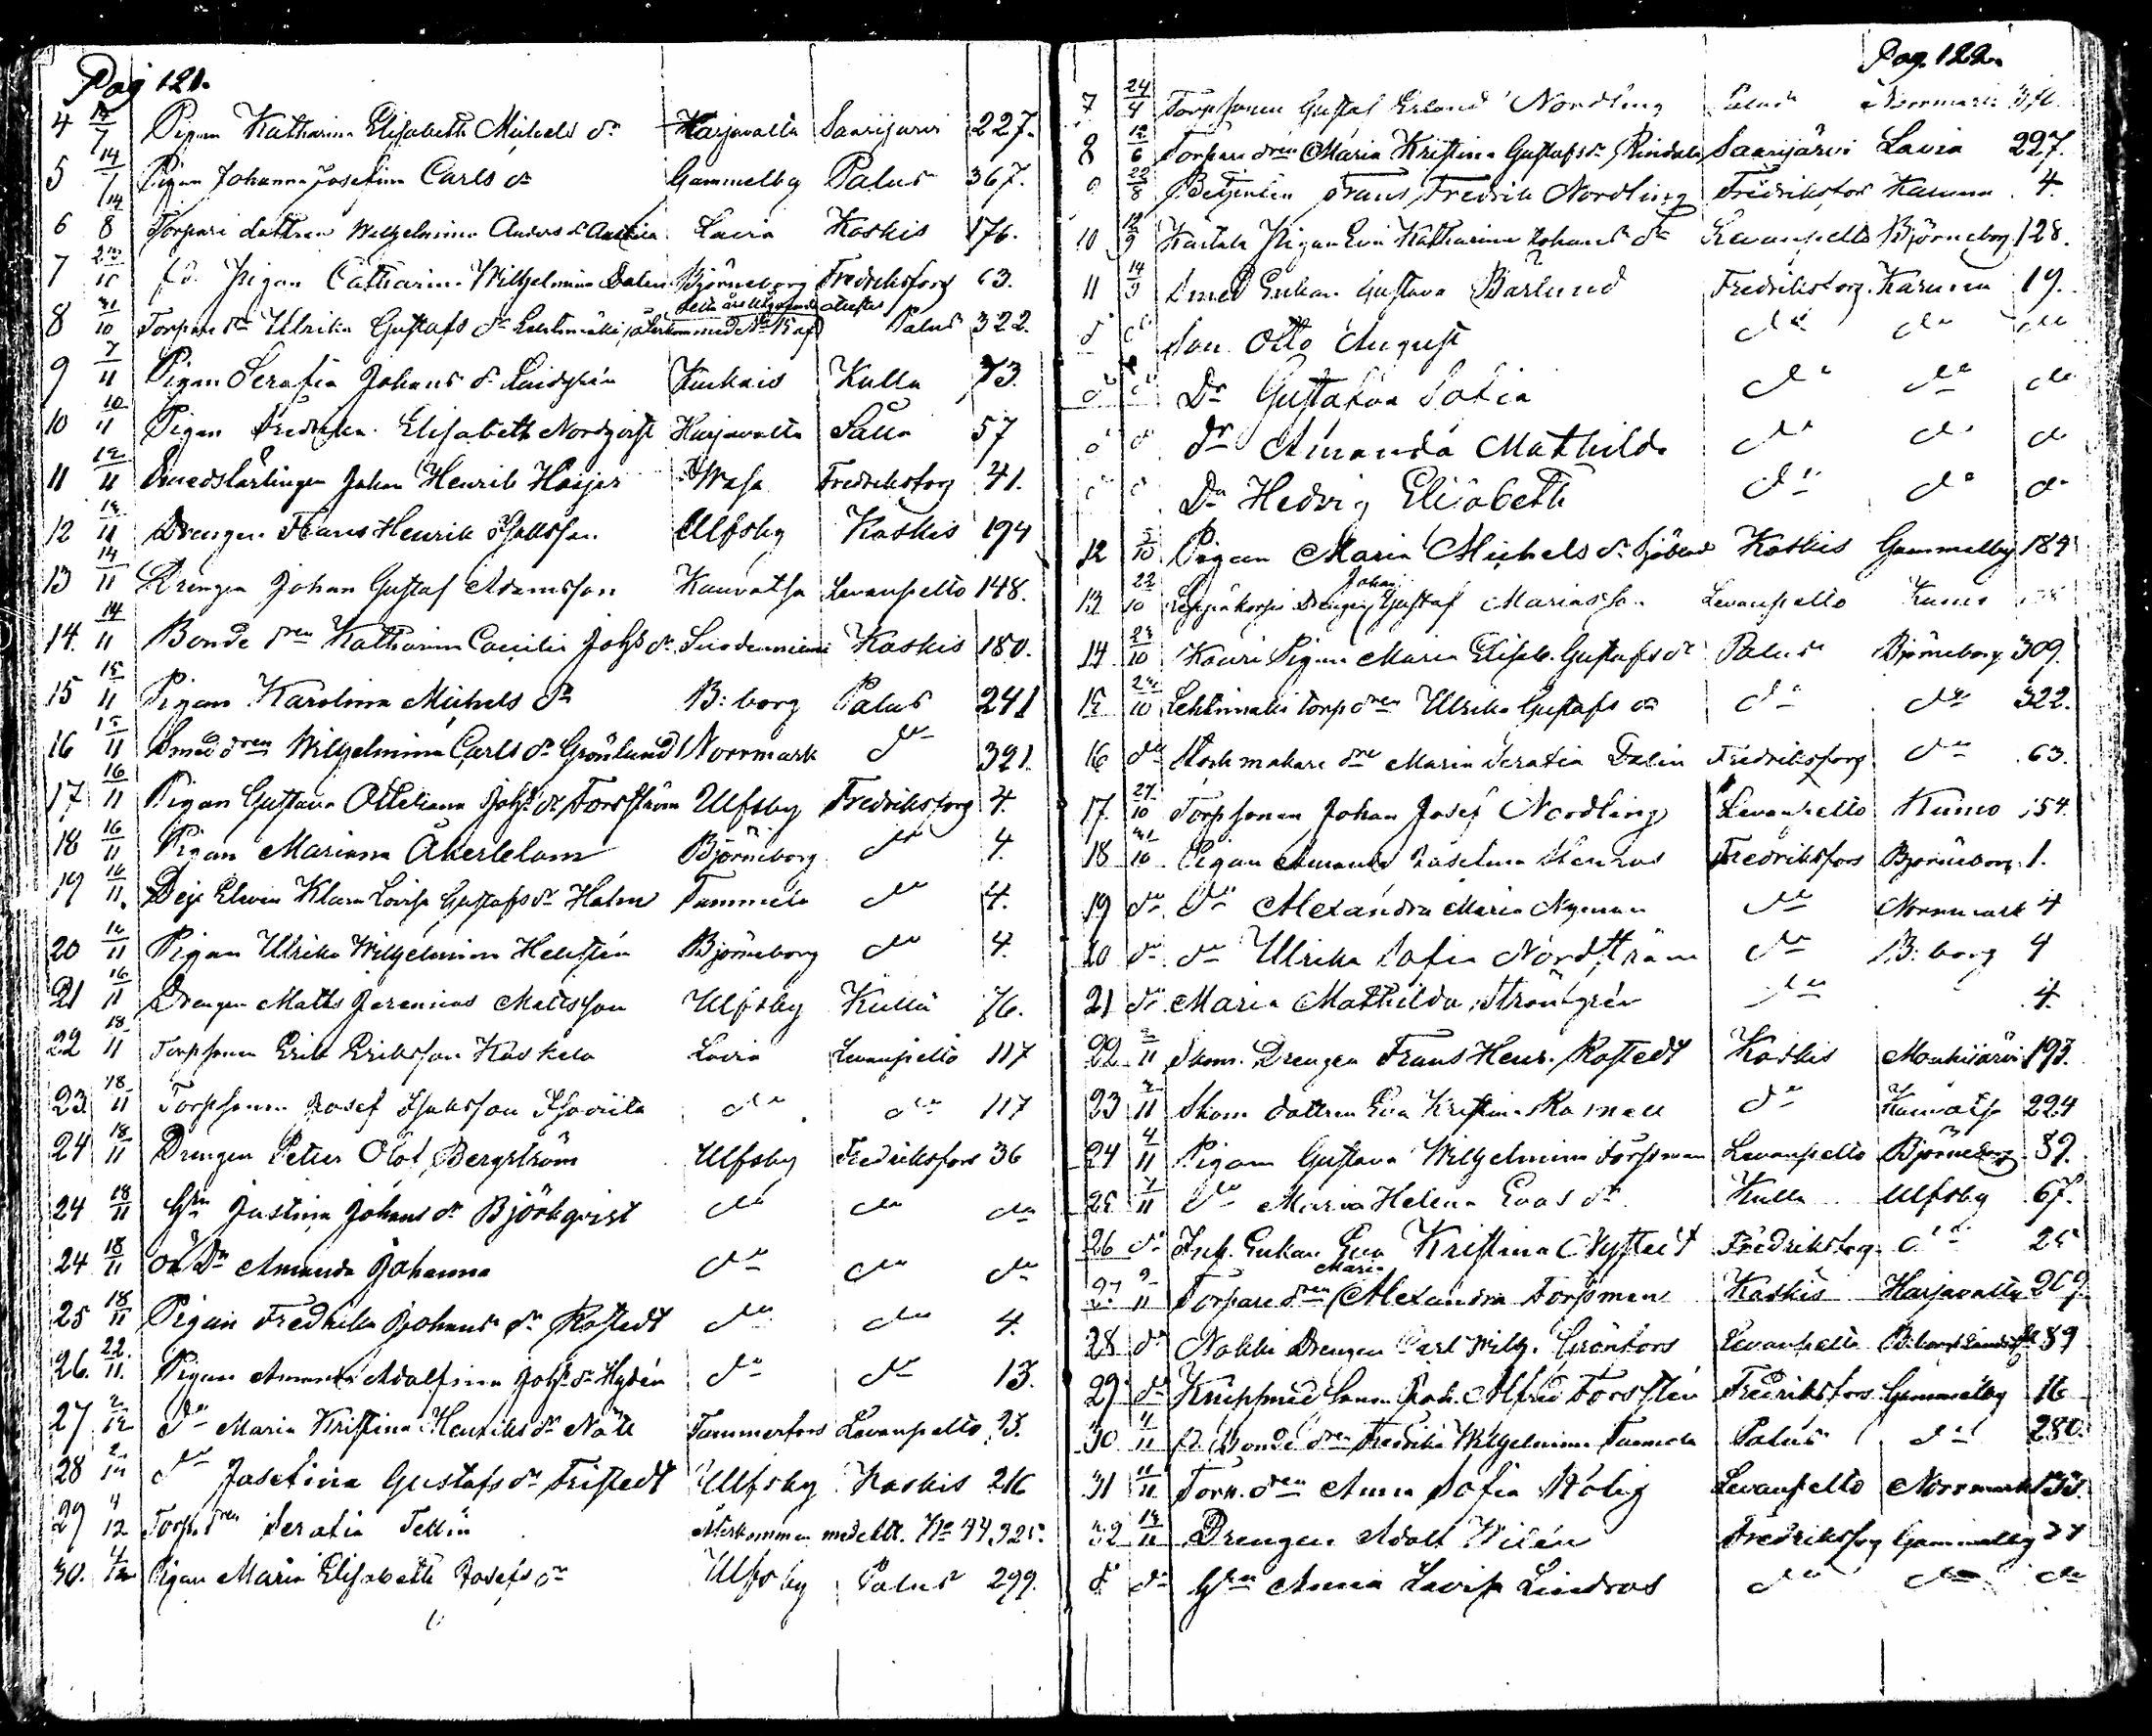 Pag 121.
4 14/7 Pigan Katharina Elisabeth Michels dr Harjavalta Saarijarvi 227.
5 14/7 Pigan Johanna Josefina Carls dr Gammelby Palus 367.
6 14/8 Torpare dottren Wilhelmina Anders dr Lavia Kaskis 176.
7 Pigan Catharina Wilhelmina Dalen Björneborg Fredriksforg 63.
8 31/10 Torpare dr Ulrika Gustafs dr Lehtimäki Palus 322.
9 7/11 Pigan Serafia Johans dr Kulla 73.
10 10/11 Pigan Fredrika Elisabeth Nordqvist Harjavalta 57
11 12/11 Smedslärlingen Johan Henrik Wasa Fredriksforg 41.
12 14/11 Drengen Frans Henrik Ulfsby Kaskis 194
13 14/11 Drengen Johan Gustaf Adamsson Kauvatsa Levanpelto 148.
14. 14/11 Bonde dren Katharina Caecilia Johs dr Suodenniemi Kaskis 180.
15 15/11 Pigan Karolina Michels dr B:borg Palus 241
16 15/11 Smed dren Wilhelmina Carls dr Grönlund Norrmark do 321.
17 16/11 Pigan Gustava Ottiliana Johs dr Forsström Ulfsby Fredriksforg 4.
18 16/11 Pigan Mariana Åkerblom Björneborg do 4.
19 16/11. Deje Elevin Klara Lovisa Gustafs dr Holm Tammela do 4.
20 16/11 Pigan Ulrika Wilhelmina Hellsten Björneborg do 4.
21 16/11 Drengen Matts Jeremias Mattsson Ulfsby Kulla 76.
22 18/11 Torpsonen Erik Eriksson Kaskela Lavia Levanpelto 117
23 18/11 Torpsonen Josef do do 117
24 18/11 Drengen Peter Olof Bergström Ulfsby Fredriksfors 36
24 18/11 Hn Justina Johans dr Björkqvist do do do
24 18/11 Dr Amanda Johanna do do do
25 18/11 Pigan Fredrika Johans dr Rostedt do do 4.
26. 22/11. Pigan Amanda Adolfina Johs dr Hydén do do 13.
27 2/12 do Maria Kristina Henriks dr Tammerfors Levanpelto 93.
28 2/12 do Josefina Gustafs dr Fristedt Ulfsby Kaskis 216
29 4/12 Torp. dren Serafia Tellin Återkommen med Att. No 44, 325.
30. 4/12 Pigan Maria Elisabeth Josefs dr Ulfsby Palus 299.
Pag. 122.
7 24/4 Torpsonen Gustaf Erland Nordling Palus Norrmark
8 12/6 Torpare dren Maria Kristina Gustafs dr Rindala Saarijärvi Lavia 227.
9 22/8 Betjenten Frans Fredrik Nordling Fredriksfors 4.
10 12/9 Pigan Eva Katharina Johans dr Levanpelto Björneborg 128.
11 14/9 Smed Enkan Gustava Barlund Fredriksforg. Karuna 19.
do do Son Otto August do do do
do do Dr Gustafva Sofia do do do
do do dr Amanda Mathilda do do do
do do Dr Hedvig Elisabeth do do do
12 5/10 Pigan Maria Michels dr Sjöblad Kaskis Gammelby 184
13 22/10 Leppäkorpi Drengen Johan Gustaf Mariasson Levanpelto Kumo
14 23/10 Kauri Pigan Maria Elisab. Gustafs dr Palus Björneborg 309.
15 24/10 Lehtimäki torp dren Ulrika Gustafs dr do do 322.
16 do Stockmakare dren Maria Serafia Dalin Fredriksforg do 63.
17. 27/10 Torpsonen Johan Josef Nordling Levanpelto Kumo 154.
18 31/10 Pigan Amanda Josefina Stenroos Fredriksfors Björneborg 1.
19 do do Alexandra Maria Nyman do Norrmark 4
20 do do Ulrika Sofia Nordström do B:borg 4
21 do Maria Mathilda Strömgrén do 4.
22 2/11 Skom. Drengen Frans Henr. Rostedt Kaskis Mouhijärvi 193.
23 2/11 Skom dottren Eva Kristina do Kauvatsa 224
24 4/11 Pigan Gustava Wilhelmina Forsman Levanpelto Björneborg 89.
25 7/11 do Maria Helena Evas dr Kulla Ulfsby 67.
26 do Inh. Enkan Eva Kristina Nystedt Fredriksforg do 25
27 9/11 Torpare dren Maria Alexandra Forsman Kaskis Harjavalta 209.
28 do Nokki Drengen Carl Wilh. Grönfors Levanpelto 89
29 do Knipsmed Sonen Joh. Alfred Forsstén Fredriksfors Gammelby 16
30 11/11 Bonde dren Fredrika Wilhelmina Palus do 280.
31 11/11 Torp. dren Anna Sofia Stålig Levanpelto Norrmark 133.
32 14/11 Drengen Adolf Widén Fredriksforg Gammelby 24
do do Hn Anna Lovisa Lindroos do do do